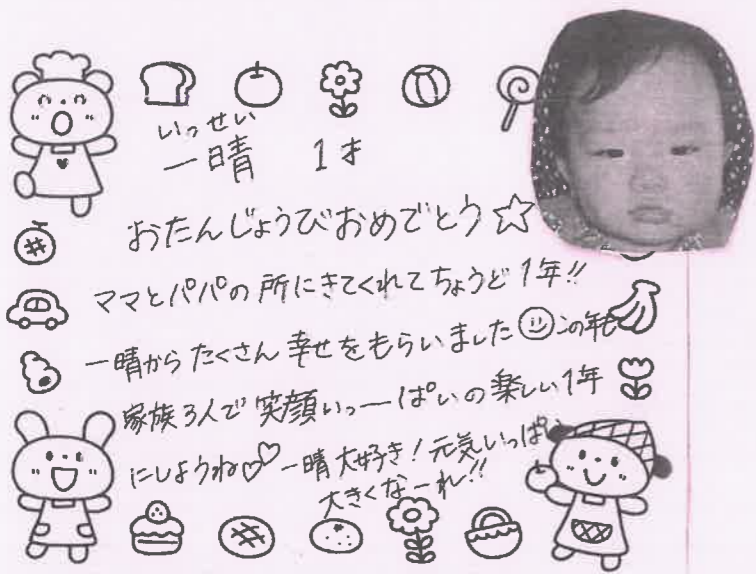 いっせい
一晴 1才
おたんじょうびおめでとう☆
ママとパパの所にきてくれてちょうど1年!!
一晴からたくさん幸せをもらいました☺この年も
家族3人で笑顔いっーぱいの楽しい1年
にしようね♡♡一晴大好き!元気いっぱい
大きくなーれ!!